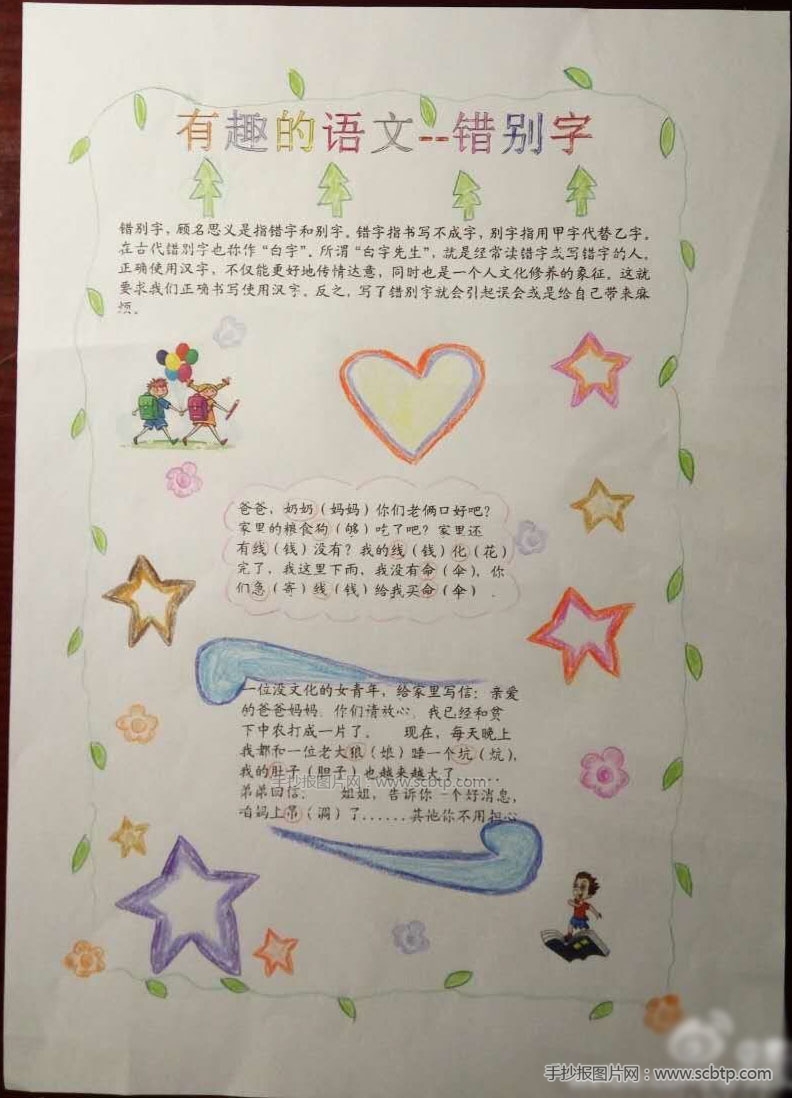 有趣的语文--错别字
错别字，顾名思义是指错字和别字。错字指书写不成字，别字指用甲字代替乙字。
在古代错别字也称作“白字”。所谓“白字先生”，就是经常读错字或写错字的人。
正确使用汉字，不仅能更好地传情达意，同时也是一个人文化修养的象征。这就
要求我们正确书写使用汉字。反之，写了错别字就会引起误会或是给自己带来麻
烦。
爸爸，奶奶（妈妈）你们老俩口好吧？
家里的粮食狗（够）吃了吧？家里还
有线（钱）没有？我的线（钱）化（花）
完了，我这里下雨，我没有命（伞），你
们急（寄）线（钱）给我买命（伞）．
一位没文化的女青年，给家里写信：亲爱
的爸爸妈妈．你们请放心．我已经和贫
下中农打成一片了。 现在，每天晚上
我都和一位老大狼（娘）睡一个坑（炕），
我的肚子（胆子）也越来越大了......
弟弟回信． 姐姐，告诉你一个好消息，
咱妈上吊（调）了......其他你不用担心
手抄报图片网：www.scbtp.com
手抄报图片网：www.scbtp.com